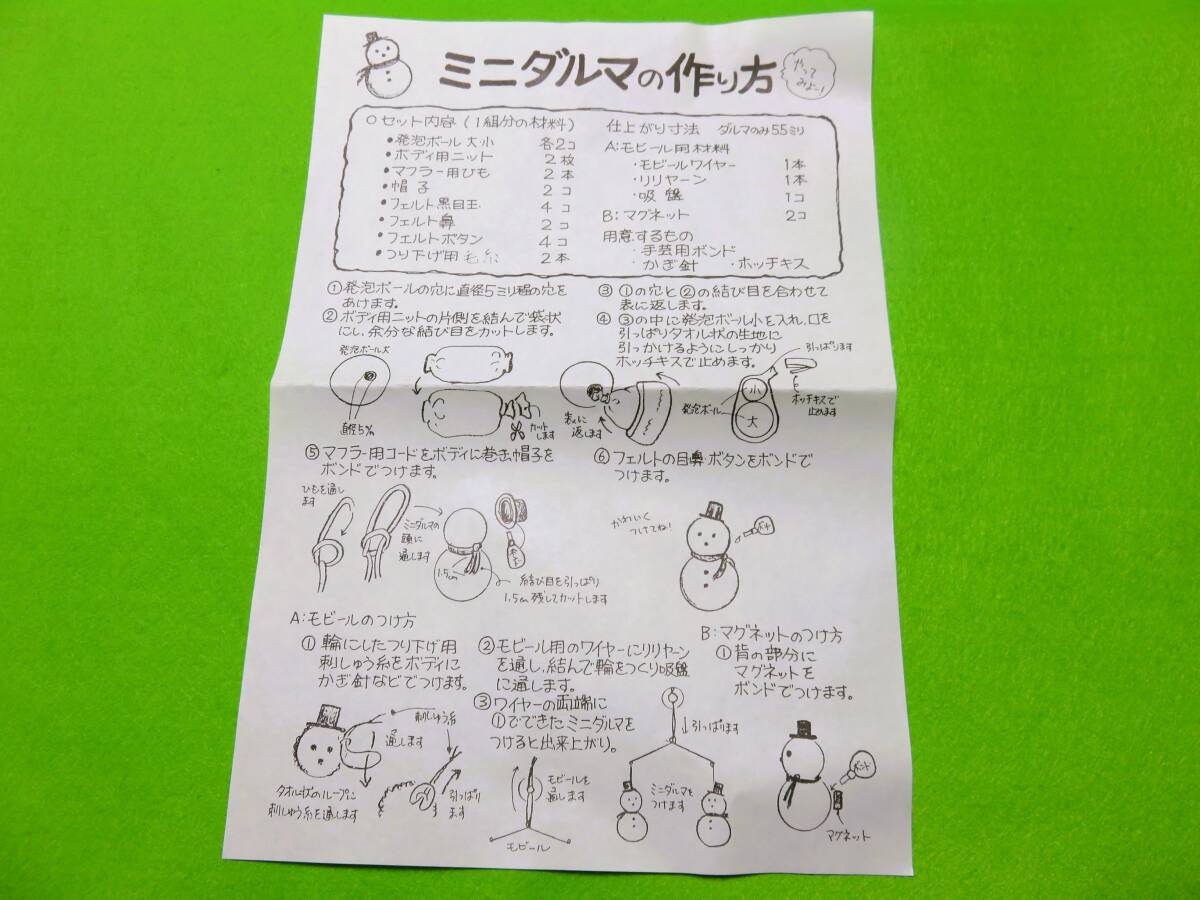 ミニダルマの作り方
やって
みよー!
○セット内容(1組分の材料)
●発泡ボール 大小 各2コ
●ボディ用ニット 2枚
●マフラー用ひも 2本
●帽子 2コ
●フェルト黒目玉 4コ
●フェルト鼻 2コ
●フェルトボタン 4コ
●つり下げ用毛糸 2本
仕上がり寸法 ダルマのみ55ミリ
A:モビール用材料
・モビールワイヤー 1本
・リリヤーン 1本
・吸盤 1コ
B:マグネット 2コ
用意するもの
・手芸用ボンド
・かぎ針 ・ホッチキス
①発泡ボールの穴に直径5ミリ程の穴を
あけます。
②ボディ用ニットの片側を結んで袋状
にし、余分な結び目をカットします。
③①の穴と②の結び目を合わせて
表に返します。
④③の中に発泡ボール小を入れ、口を
引っぱりタオル状の生地に
引っかけるようにしっかり
ホッチキスで止めます。
発泡ボール大
直径5㎜
カット
します
表に
返します
発泡ボール
小
大
引っぱります
ホッチキスで
止めます
⑤マフラー用コードをボディに巻き、帽子を
ボンドでつけます。
⑥フェルトの目・鼻・ボタンをボンドで
つけます。
ひもを通し
ます
ミニダルマの
頭に
通します
1.5cm
結び目を引っぱり
1.5cm残してカットします
かわいく
つけてね!
A:モビールのつけ方
①輪にしたつり下げ用
刺しゅう糸をボディに
かぎ針などでつけます。
②モビール用のワイヤーにリリヤーン
を通し、結んで輪をつくり吸盤
に通します。
③ワイヤーの両端に
①でできたミニダルマを
つけると出来上がり。
B:マグネットのつけ方
①背の部分に
マグネットを
ボンドでつけます。
刺しゅう糸
通します
タオル状のループに
刺しゅう糸を通します
引っぱり
ます
モビールを
通します
モビール
引っぱります
ミニダルマを
つけます
ボンド
マグネット